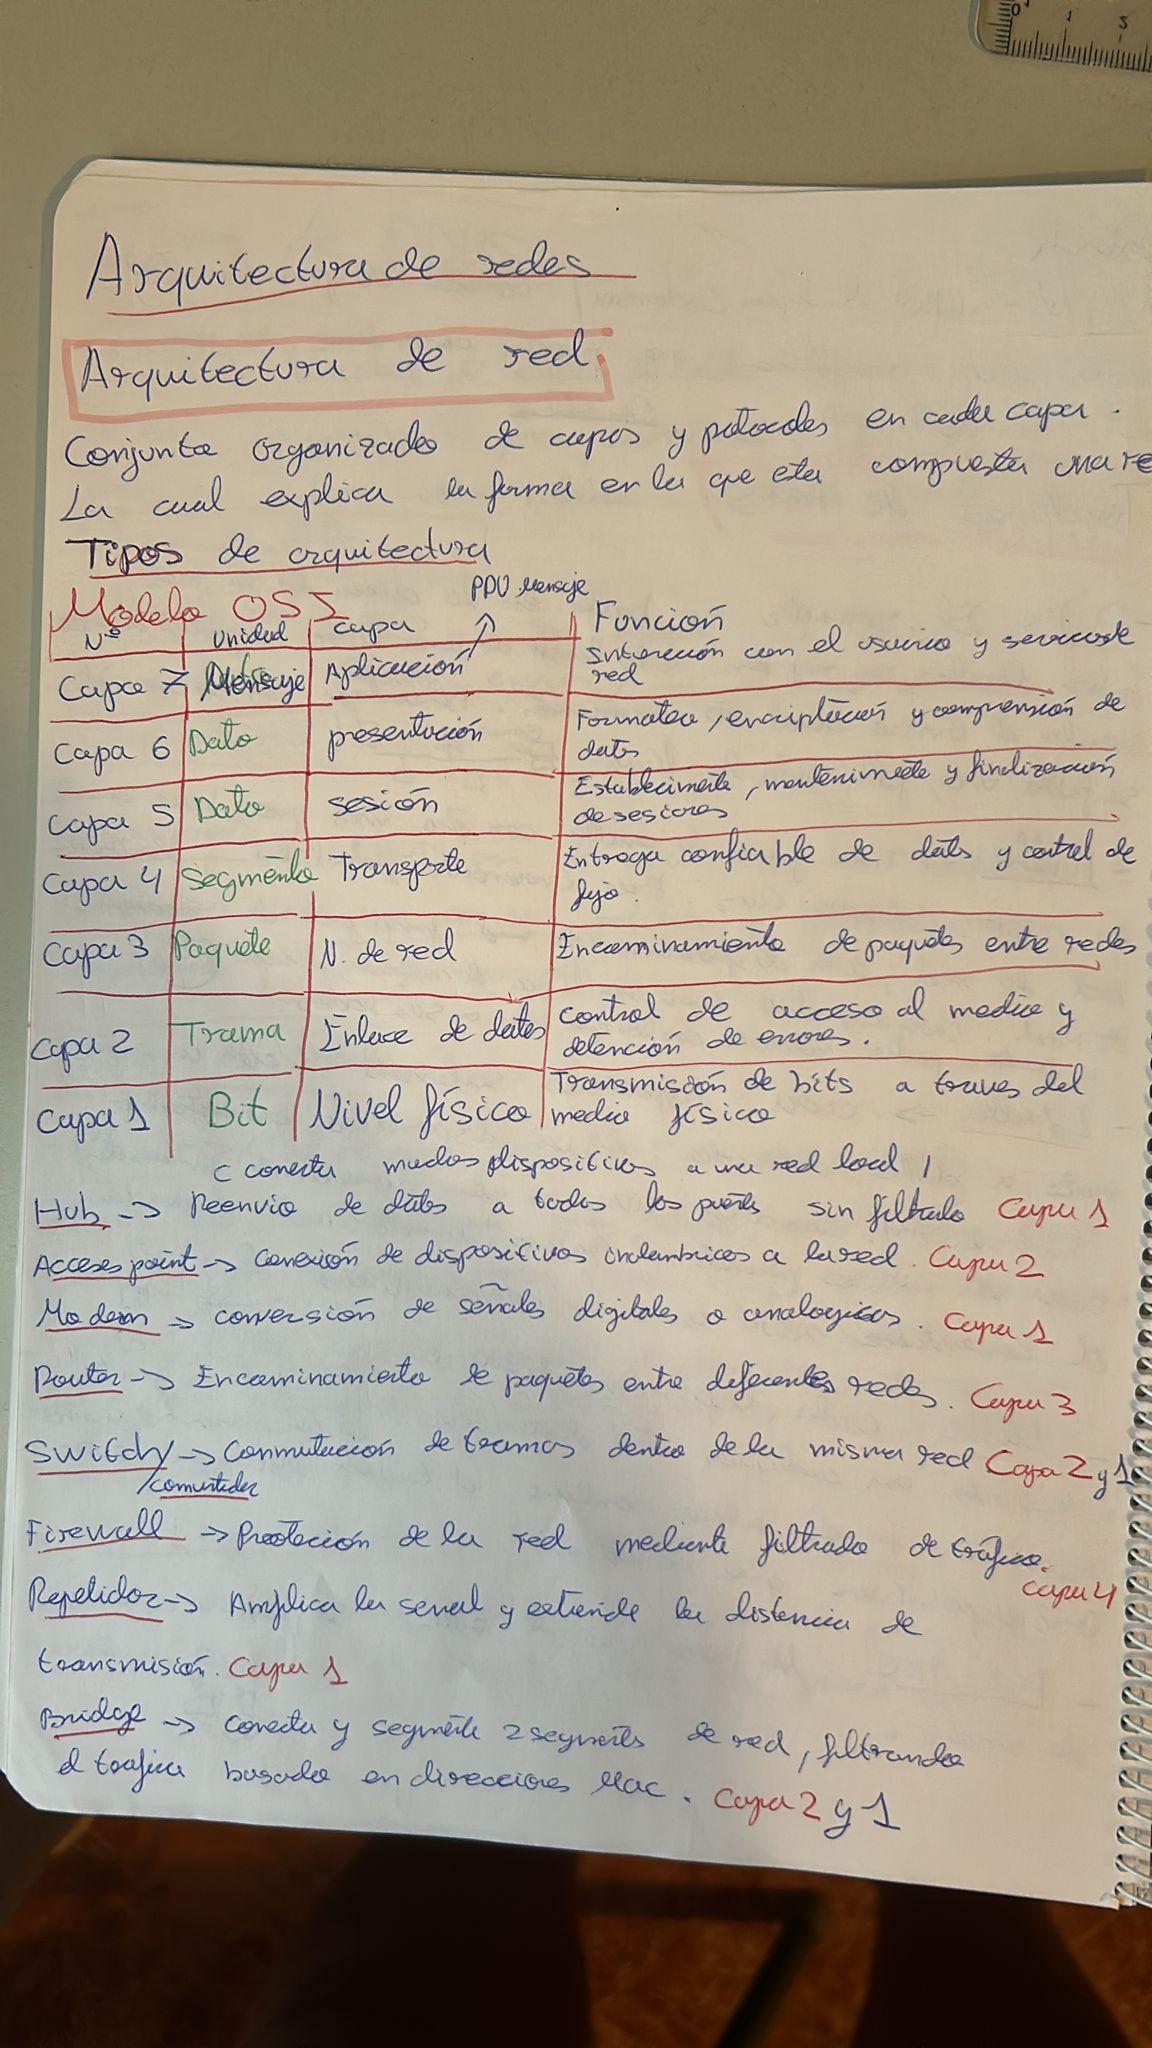 Arquitectura de redes
Arquitectura de red
Conjunto organizado de capas y potocoles en cada capa.
La cual explica la forma en la que eta compuesta una re
Tipos de arquitectura
PDU Mensaje
Modelo OSI
Nº Unidad capa Función
Capa 7 Mensaje Aplicación Interacción con el usuario y servicios de
red
Capa 6 Dato presentación Formateo, encriptación y comprensión de
datos
Capa 5 Dato sesión Establecimiento, mantenimiento y finalización
de sesiones
Capa 4 Segmento Transporte Entrega confiable de datos y control de
flujo.
Capa 3 Paquete N. de red Encaminamiento de paquetes entre redes
Capa 2 Trama Enlace de datos control de acceso al medio y
detención de errores.
Capa 1 Bit Nivel físico Transmisión de bits a traves del
medio físico
( conecta muchos dispositivos a una red local )
Hub -> Reenvio de datos a todos los puertos sin filtrado Capa 1
Acceses point -> conexión de dispositivos inalambricos a la red. Capa 2
Modem -> conversión de señales digitales a analogicas. Capa 1
Router -> Encaminamiento de paquetes entre diferentes redes. Capa 3
Switch -> Conmutación de tramas dentro de la misma red Capa 2 y 1
/comutador
Firewall -> Protección de la red mediante filtrado de tráfico.
Capa 4
Repetidor -> Amplica la senal y extiende la distancia de
transmisión. Capa 1
Bridge -> conecta y segmenta 2 segments de red, filtrando
el trafico basado en direcciones Mac. Capa 2 y 1